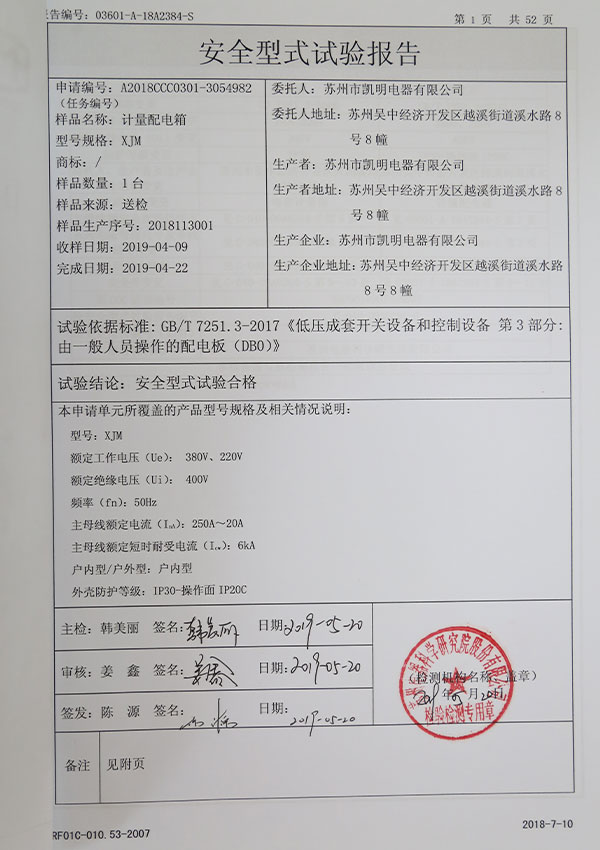 告编号：03601-A-18A2384-S
第 1 页 共 52 页
安全型式试验报告
申请编号：A2018CCC0301-3054982
（任务编号）
样品名称：计量配电箱
型号规格：XJM
商标：/
样品数量：1 台
样品来源：送检
样品生产序号：2018113001
收样日期：2019-04-09
完成日期：2019-04-22
委托人：苏州市凯明电器有限公司
委托人地址：苏州吴中经济开发区越溪街道溪水路 8
号 8 幢
生产者：苏州市凯明电器有限公司
生产者地址：苏州吴中经济开发区越溪街道溪水路 8
号 8 幢
生产企业：苏州市凯明电器有限公司
生产企业地址：苏州吴中经济开发区越溪街道溪水路
8 号 8 幢
试验依据标准：GB/T 7251.3-2017《低压成套开关设备和控制设备 第 3 部分：
由一般人员操作的配电板（DBO）》
试验结论：安全型式试验合格
本申请单元所覆盖的产品型号规格及相关情况说明：
型号：XJM
额定工作电压（Ue）：380V、220V
额定绝缘电压（Ui）：400V
频率（fn）：50Hz
主母线额定电流（InA）：250A～20A
主母线额定短时耐受电流（Icw）：6kA
户内型/户外型：户内型
外壳防护等级：IP30-操作面 IP20C
主检：韩美丽 签名：韩美丽 日期：2019-05-20
审核：姜 鑫 签名：姜鑫 日期：2019-05-20
签发：陈 源 签名： 日期：2019-05-20
科学研究院股份有限公司
（检测机构名称 盖章）
年 月 20日
检验检测专用章
备注 见附页
RF01C-010.53-2007
2018-7-10